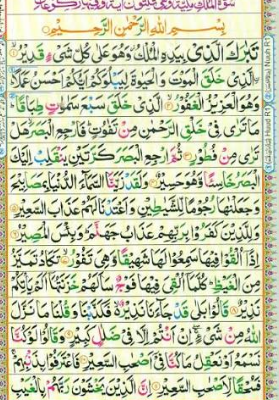 سورة الملك مكية وهي ثلثون اية وفيها ركوعان
بسم الله الرحمن الرحيم
تبرك الذي بيده الملك وهو على كل شيء قدير
الذي خلق الموت والحيوة ليبلوكم ايكم احسن عملا
وهو العزيز الغفور الذي خلق سبع سموت طباقا
ما ترى في خلق الرحمن من تفوت فارجع البصر هل
ترى من فطور ثم ارجع البصر كرتين ينقلب اليك
البصر خاسئا وهو حسير ولقد زينا السماء الدنيا بمصابيح
وجعلنها رجوما للشيطين واعتدنا لهم عذاب السعير
وللذين كفروا بربهم عذاب جهنم وبئس المصير
اذا القوا فيها سمعوا لها شهيقا وهي تفور تكاد تميز
من الغيظ كلما القي فيها فوج سالهم خزنتها الم ياتكم
نذير قالوا بلى قد جاءنا نذير فكذبنا وقلنا ما نزل
الله من شيء ان انتم الا في ضلل كبير وقالوا لو كنا
نسمع او نعقل ما كنا في اصحب السعير فاعترفوا بذنبهم
فسحقا لاصحب السعير ان الذين يخشون ربهم بالغيب